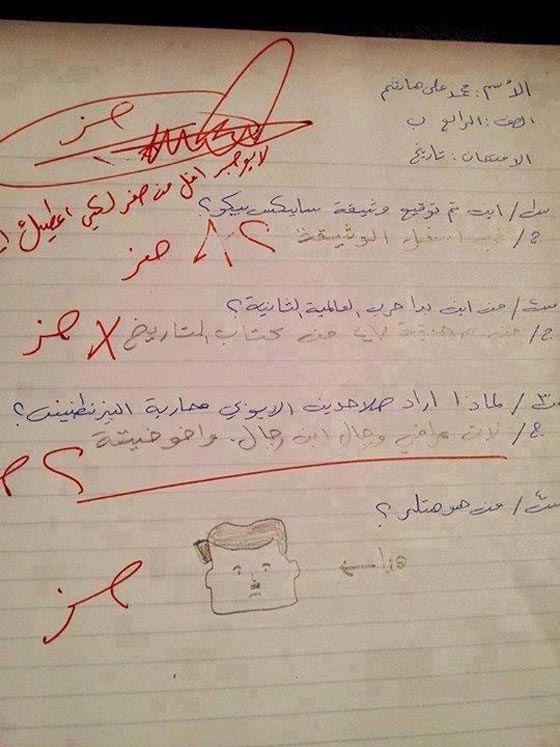 الأسم: محمد علي هاشم
الصف: الرابع ب
الامتحان: تاريخ
صفر
لا يوجد اقل من صفر لكي اعطيك
س١/ اين تم توقيع وثيقة سايكس بيكو؟
ج/ في اسفل الوثيقة
صفر
س٢/ من اين بدا حرب العالمية الثانية؟
ج/ من صفحة ٤٧ من كتاب التاريخ
صفر
س٣/ لماذا اراد صلاحدين الايوبي محاربة البيزنطينين؟
ج/ لان عراقي رجال ابن رجال. واخو خيته
س٤/ من هو هتلر؟
صفر